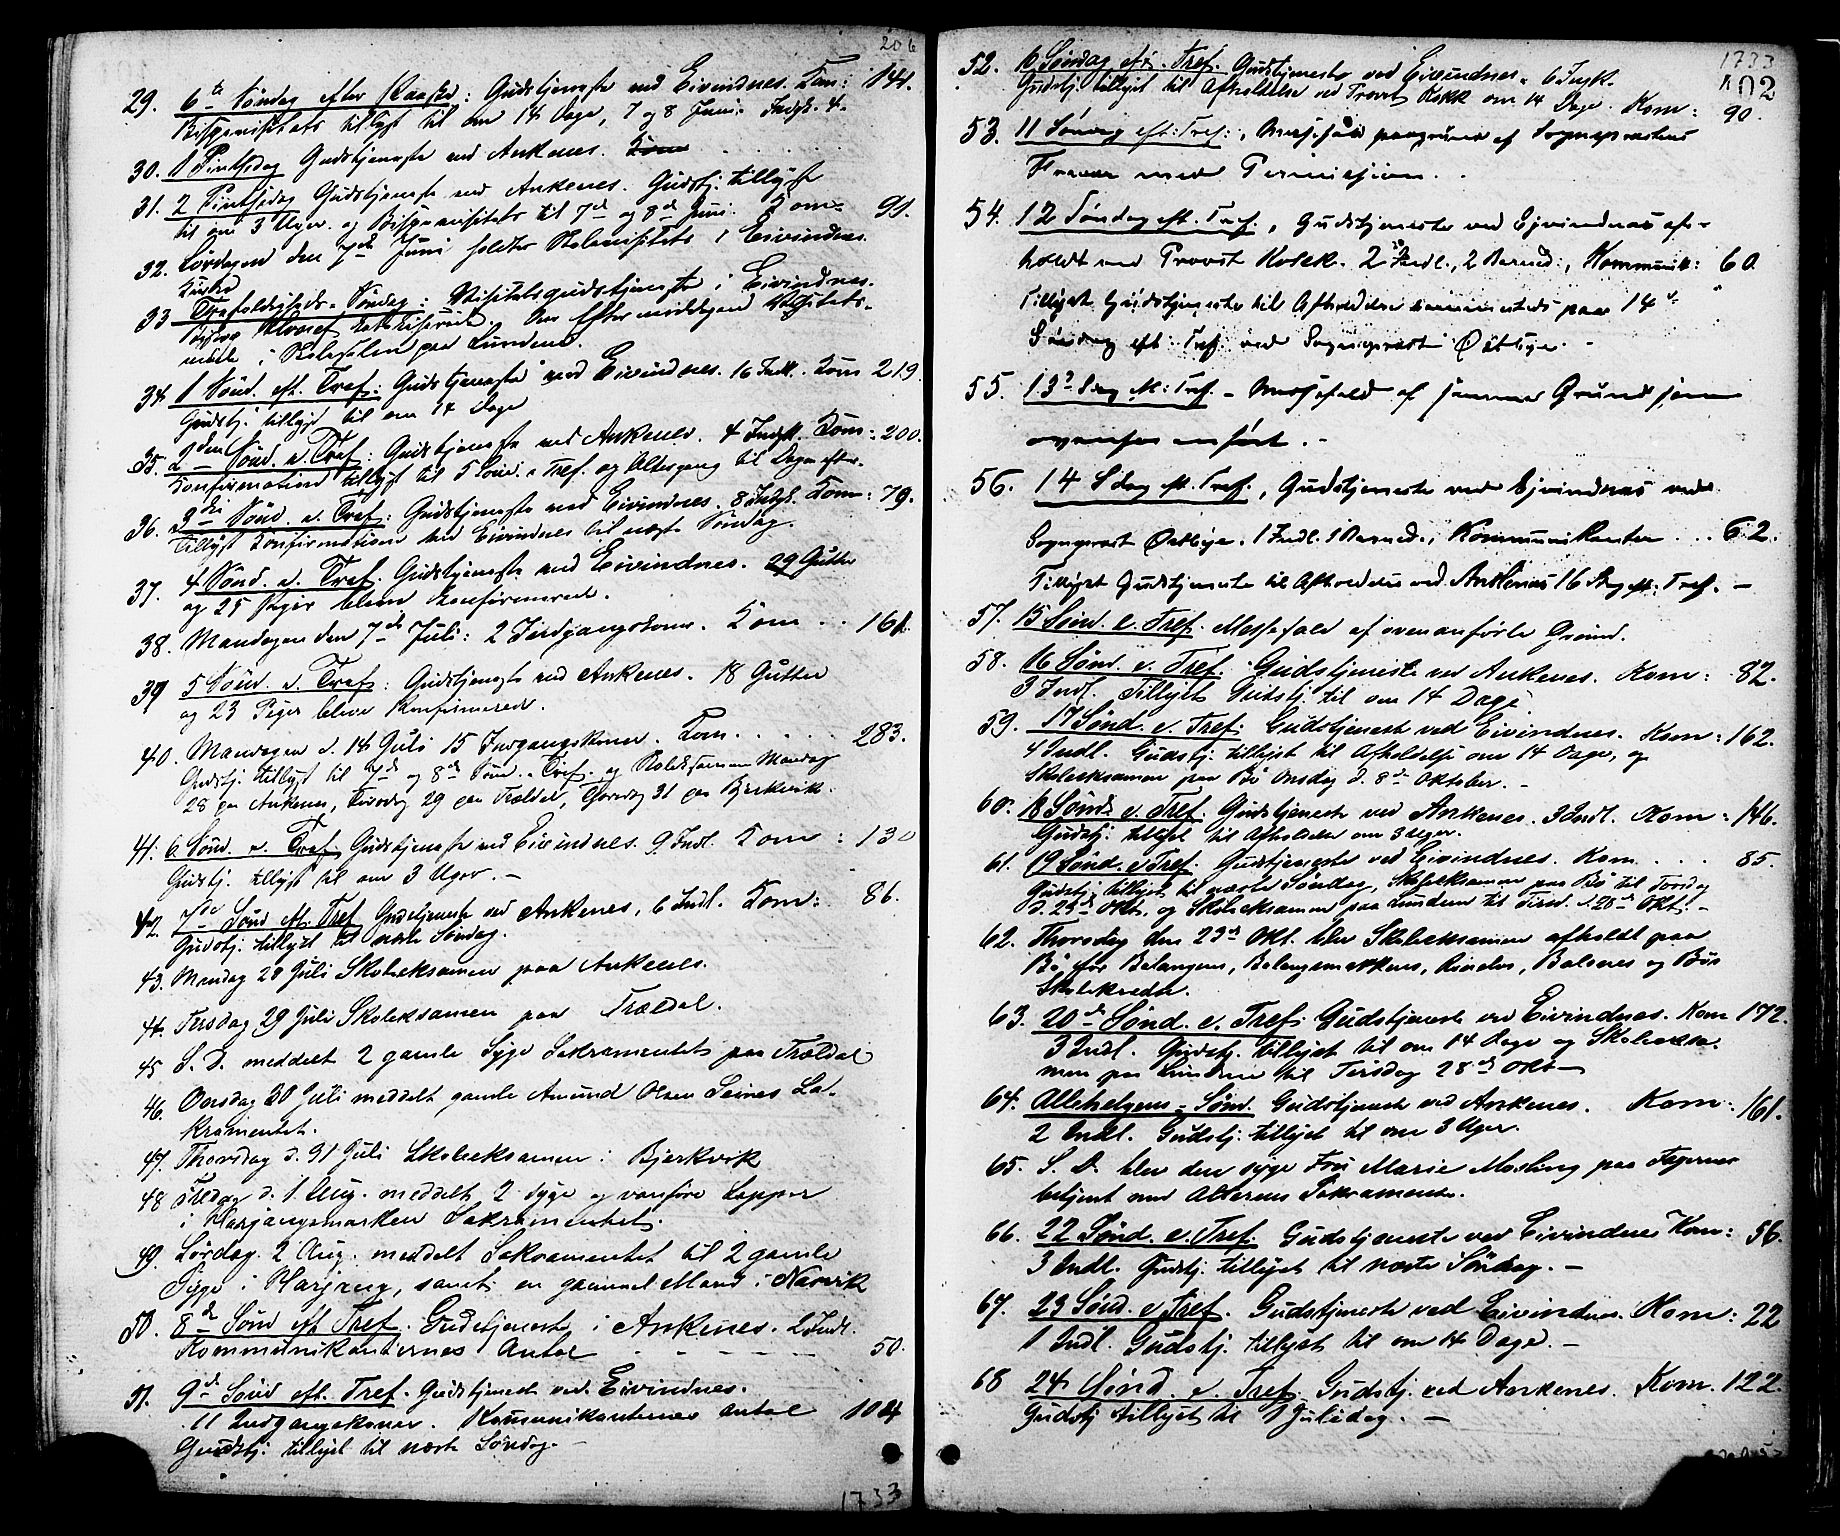 206
29. 6te Söndag efter Paaske: Gudstjeneste ved Eivindnes. Kom: 141.
Bispevisitats tillyst til om 14 Dage, 7 og 8 Juni. Indgk. 4.
30. 1 Pintsedag Gudstjeneste ved Ankenes.
31. 2 Pintsedag Gudstjeneste ved Ankenes. Gudstj. tillyst
til om 3 Uger. og Bispevisitats til 7de og 8de Juni. Kom: 91.
32. Lördagen den 7de Juni holdtes Skolevisitats i Eivindnes
Kirke
33 Trefoldigheds-Söndag: Visitatsgudstjeneste i Eivindnes.
Biskop katekiserede. Om Eftermiddagen Visitats-
möde i Skolesalen paa Lundene.
34. 1 Sönd. eft. Tref: Gudstjeneste ved Eivindnes. 16 Indl. Kom 219.
Gudstj. tillyst til om 14 Dage
35. 2den Sönd. e. Tref: Gudstjeneste ved Ankenes. 4 Indgk. Kom: 200.
Konfirmation tillyst til 5 Sönd. e. Tref. og Altergang til Dagen efter.
36. 3die Sönd. e. Tref: Gudstjeneste ved Eivindnes. 8 Indgk. Kom: 79.
Tillyst Konfirmation ved Eivindnes til næste Söndag.
37. 4 Sönd. e. Tref. Gudstjeneste ved Eivindnes. 29 Gutter
og 25 Piger bleve konfirmerede.
38. Mandagen den 7de Juli: 2 Indgangskoner. Kom . . 161
39 5 Sönd. e. Tref: Gudstjeneste ved Ankenes. 18 Gutter
og 23 Piger bleve Konfirmerede.
40. Mandagen d. 14 Juli 15 Indgangskoner. Kom. . . . . . 283.
Gudstj. tillyst til 7de og 8de Sönd. e. Tref. og Skoleksamen Mandag
28 paa Ankenes, Tirsdag 29 paa Trældal, Torsdag 31 paa Bjerkvik.
41. 6. Sönd. e. Tref. Gudstjeneste ved Eivindnes. 9 Indl. Kom : 130
Gudstj. tillyst til om 3 Uger. –
42. 7de Sönd eft. Tref Gudstjeneste ved Ankenes, 6 Indl. Kom: 86.
Gudstj. tillyst til næste Söndag.
43. Mandag 28 Juli Skoleeksamen paa Ankenes.
44. Tirsdag 29 Juli Skoleksamen paa Trældal.
45 S. D. meddelt 2 gamle Syge Sakramentet paa Trældal
46. Onsdag 30 Juli meddelt gamle Amund Olsen Leines Sa-
kramentet.
47. Thorsdag d. 31 Juli Skoleeksamen i Bjerkvik
48 Fredag d. 1 Aug. meddelt 2 syge og vanföre Lapper
i Harjangsmarken Sakramentet.
49. Lördag. 2 Aug. meddelt Sakramentet til 2 gamle
Syge i Harjang, samt en gammel Mand i Narvik
50. 8de Sönd eft Tref. Gudstjeneste i Ankenes. 2 Indl.
Kommunikanternes Antal – – – – – – 50.
51. 9de Sönd eft. Tref. Gudstjeneste ved Eivindnes.
11 Indgangskoner. Kommunikanternes Antal 104
Gudstj. tillyst til næste Söndag. –
1733
1733
102
52. 10 Söndag eft. Tref. Gudstjeneste ved Eivindnes. 6 Ingk.
Gudstj. tillyst til Afholdelse ved Provst Kokk om 14 Dage. Kom: 90.
53. 11 Söndag eft: Tref:, Messefald paagrund af Sognepræstens
Fravær med Permission. .
54. 12 Söndag eft. Tref., Gudstjeneste ved Ejvindnæs af-
holdt ved Provst Kolek. 2 Indl., 2 Barned:, Kommunik: 60.
Tillyst Gudstjeneste til Afholdelse sammesteds paa 14de
Söndag eft. Tref. ved Sognepræst Östbye. –
55. 13de Sdag eft: Tref. – Messefald af samme Grund som
ovenfor anfört. –
56. 14 Sdag eft. Tref., Gudstjeneste ved Ejvindnæs ved
Sognepræst Østbye. 1 Indl. 1 Barned., Kommunikanter . . . 62.
Tillyst Gudstjeneste til Afholdelse ved Ankenæs 16 Sdag eft: Tref. –
57. 15 Sönd. e. Tref. Messefald af ovenanförte Grund.
58. 16 Sönd. e. Tref. Gudstjeneste ved Ankenes. Kom: 82.
3 Indl. Tillyst Gudstj. til om 14 Dage.
59. 17 Sönd. e. Tref. Gudstjeneste ved Eivindnes. Kom: 162.
4 Indl. Gudstj. tillyst til Afholdelse om 14 Dage, og
Skoleeksamen paa Bö Onsdag d. 8de Oktober. –
60. 18 Sönd. e. Tref. Gudstjeneste ved Ankenes. 3 Indl. Kom: 146.
Gudstj: tillyst til Afholdelse om 3 Uger.
61. 19 Sönd. e. Tref. Gudstjeneste ved Eivindnes. Kom. . . . 85.
Gudstj. tillyst til næste Söndag, Skoleeksamen paa Bö til Torsdag
d. 23de Okt. og Skoleeksamen paa Lundene til Tirsd. d. 28de Okt. –
62. Thorsdag den 23de Okt. blev Skoleeksamen afholdt paa
Bö for Beisngens, Beisngsmarkens, Rindes, Balsnes og Bös
Skolekredse.
63. 20de Sönd. e. Tref. Gudstjeneste ved Eivindnes. Kom 172.
3 Indl. Gudstj. tillyst til om 14 Dage og Skoleeksa-
men paa Lundene til Tirsdag 28de Okt –
64. Allehelgens-Sönd. Gudstjeneste ved Ankenes. Kom: 161.
2 Indl. Gudstj. tillyst til om 3 Uger.
65. S. D. blev den syge Fru Marie Mosling paa Fagernes
betjent med Alterens Sakramente.
66. 22 Sönd. e. Tref. Gudstjeneste ved Eivindnes Kom: 56.
3 Indl. Gudstj. tillyst til næste Söndag. –
67. 23 Sönd. e. Tref. Gudstjeneste ved Eivindnes. Kom: 22
1 Indl. Gudstj. tillyst til om 14 Dage. –
68 24 Sönd. e. Tref. Gudstj. ved Ankenes. Kom. 122.
Gudstj tillyst til 1 Juledag. –